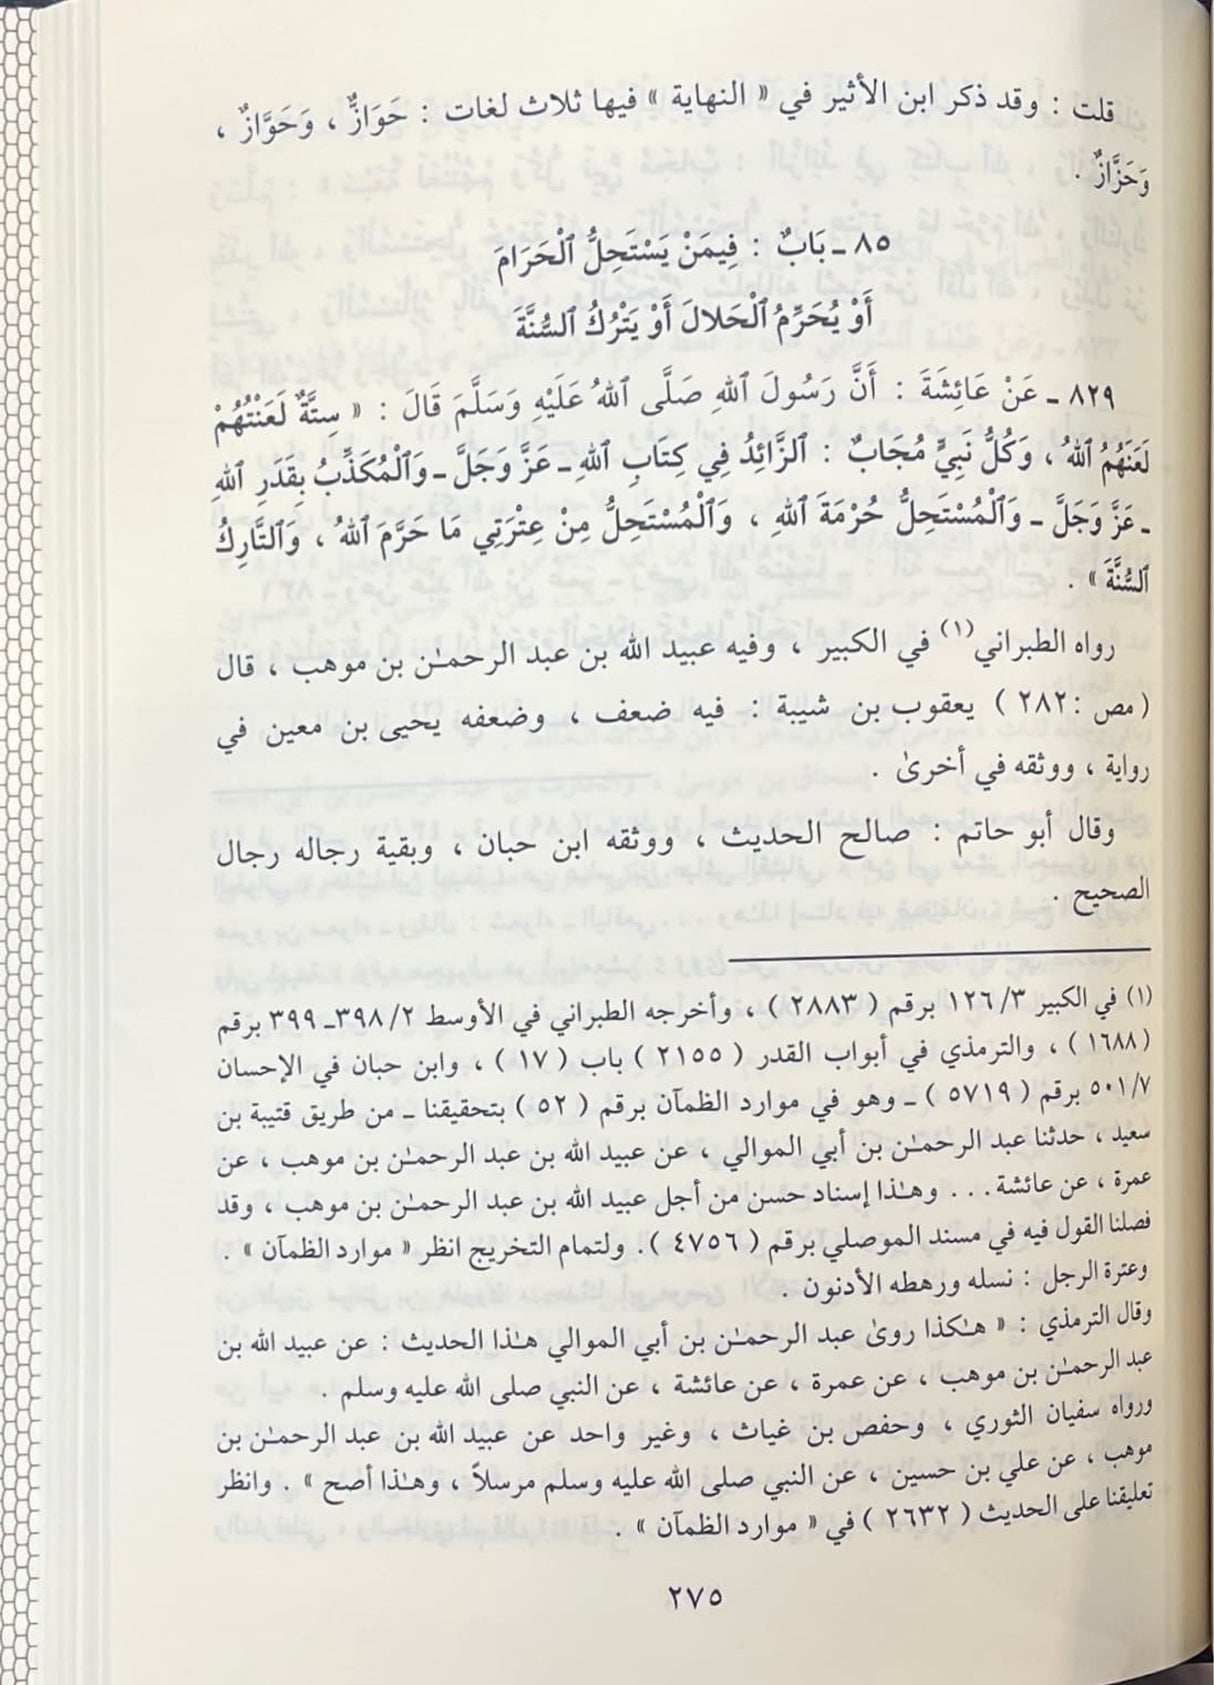 قلت : وقد ذكر ابن الأثير في « النهاية » فيها ثلاث لغات : حَوَازٌّ ، وَحَوَّازٌ ،
وَحَزَّازٌ .
٨٥ ـ بَابٌ : فِيمَنْ يَسْتَحِلُّ ٱلْحَرَامَ
أَوْ يُحَرِّمُ ٱلْحَلالَ أَوْ يَتْرُكُ ٱلسُّنَّةَ
٨٢٩ ـ عَنْ عَائِشَةَ : أَنَّ رَسُولَ ٱللهِ صَلَّى ٱللهُ عَلَيْهِ وَسَلَّمَ قَالَ : « سِتَّةٌ لَعَنْتُهُمْ
لَعَنَهُمُ ٱللهُ ، وَكُلُّ نَبِيٍّ مُجَابٌ : ٱلزَّائِدُ فِي كِتَابِ ٱللهِ ـ عَزَّ وَجَلَّ ـ وَٱلْمُكَذِّبُ بِقَدَرِ ٱللهِ
ـ عَزَّ وَجَلَّ ـ وَٱلْمُسْتَحِلُّ حُرْمَةَ ٱللهِ ، وَٱلْمُسْتَحِلُّ مِنْ عِتْرَتِي مَا حَرَّمَ ٱللهُ ، وَٱلتَّارِكُ
ٱلسُّنَّةَ » .
رواه الطبراني(١) في الكبير ، وفيه عبيد الله بن عبد الرحمـٰن بن موهب ، قال
( مص : ٢٨٢ ) يعقوب بن شيبة : فيه ضعف ، وضعفه يحيى بن معين في
رواية ، ووثقه في أخرىٰ .
وقال أبو حاتم : صالح الحديث ، ووثقه ابن حبان ، وبقية رجاله رجال
الصحيح .
(١) في الكبير ٣/ ١٢٦ برقم ( ٢٨٨٣ ) ، وأخرجه الطبراني في الأوسط ٢/ ٣٩٨ـ ٣٩٩ برقم
( ١٦٨٨ ) ، والترمذي في أبواب القدر ( ٢١٥٥ ) باب ( ١٧ ) ، وابن حبان في الإحسان
٧/ ٥٠١ برقم ( ٥٧١٩ ) ـ وهو في موارد الظمآن برقم ( ٥٢ ) بتحقيقنا ـ من طريق قتيبة بن
سعيد ، حدثنا عبد الرحمـٰن بن أبي الموالي ، عن عبيد الله بن عبد الرحمـٰن بن موهب ، عن
عمرة ، عن عائشة . . . وهـٰذا إسناد حسن من أجل عبيد الله بن عبد الرحمـٰن بن موهب ، وقد
فصلنا القول فيه في مسند الموصلي برقم ( ٤٧٥٦ ) . ولتمام التخريج انظر « موارد الظمآن » .
وعترة الرجل : نسله ورهطه الأدنون .
وقال الترمذي : « هـٰكذا روىٰ عبد الرحمـٰن بن أبي الموالي هـٰذا الحديث : عن عبيد الله بن
عبد الرحمـٰن بن موهب ، عن عمرة ، عن عائشة ، عن النبي صلى الله عليه وسلم .
ورواه سفيان الثوري ، وحفص بن غياث ، وغير واحد عن عبيد الله بن عبد الرحمـٰن بن
موهب ، عن علي بن حسين ، عن النبي صلى الله عليه وسلم مرسلاً ، وهـٰذا أصح » . وانظر
تعليقنا على الحديث ( ٢٦٣٢ ) في « موارد الظمآن » .
٢٧٥